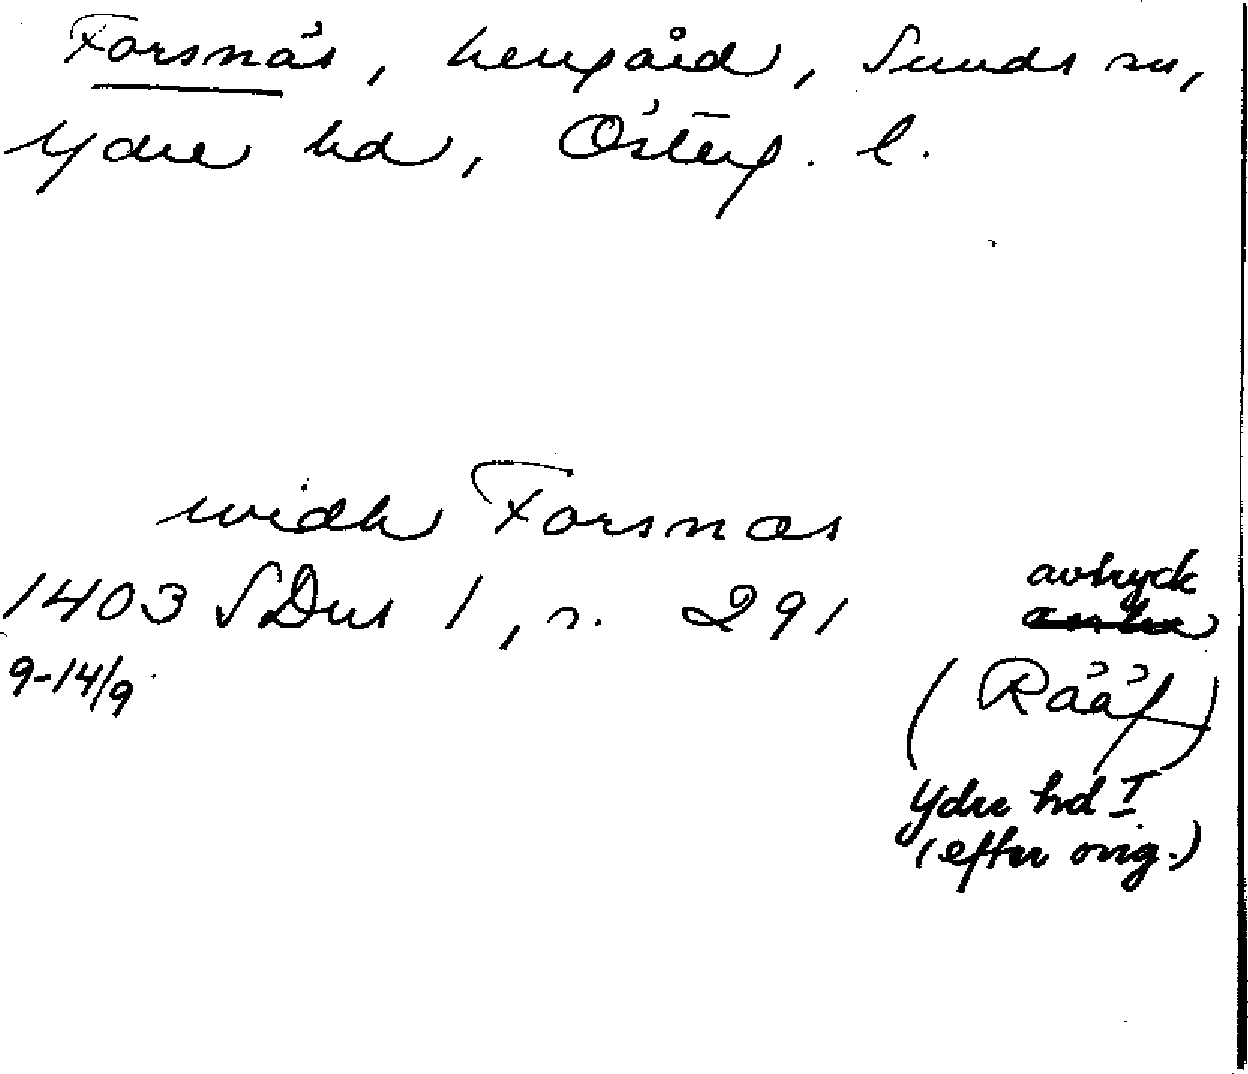 Forsnäs, herrgård, Sunds sn,
Ydre hd, Österg. l.
widh Forsnæs
1403 SDns 1, s. 291
9-14/9
avtryck
(Rääf)
Ydre hd I
(efter orig.)